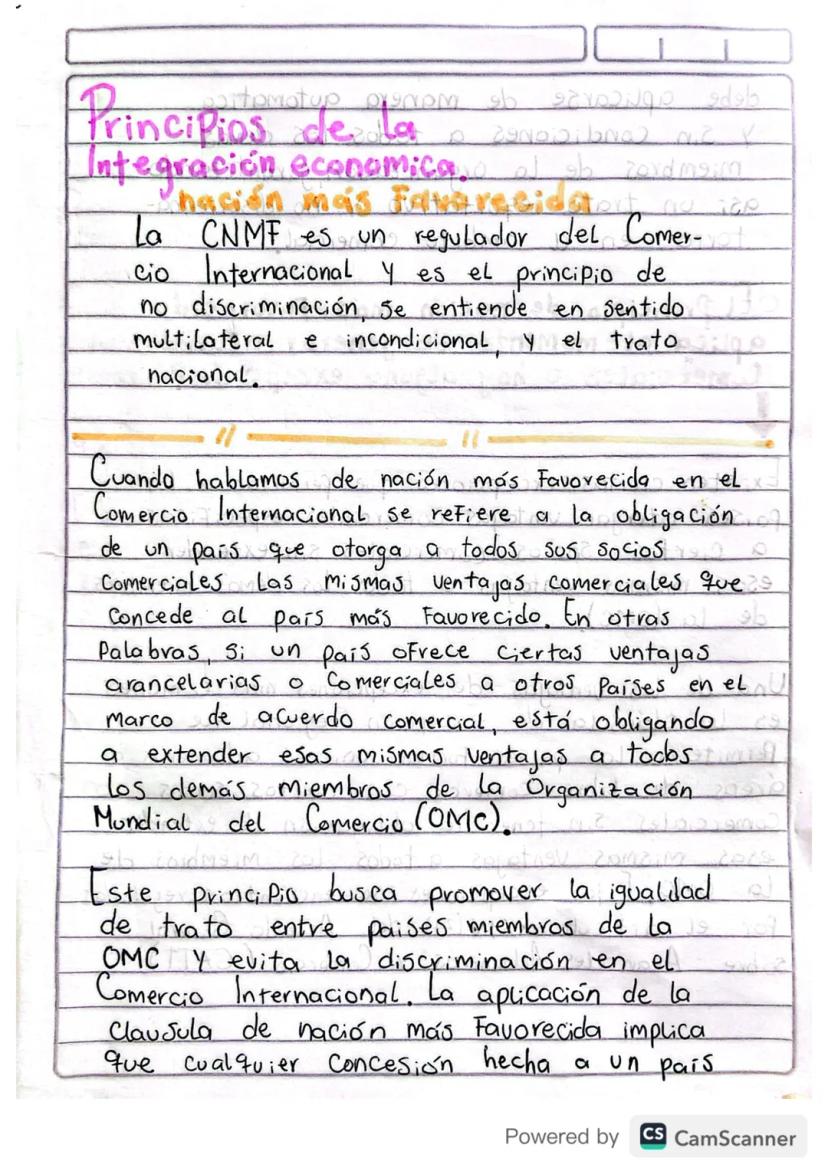 Principios de la
Integración economica.
nación más Favorecida
La CNMF es un regulador del Comer-
cio Internacional y es el principio de
no discriminación, se entiende en sentido
multilateral e incondicional, y el trato
nacional.
Cuando hablamos de nación más Favorecida en el
Comercio Internacional se refiere a la obligación
de un país que otorga a todos sus socios
comerciales las mismas ventajas comerciales que
concede al país más Favorecido. En otras
Palabras, si un país ofrece ciertas ventajas
arancelarias o comerciales a otros países en el
marco de acuerdo comercial, está obligando
a extender esas mismas ventajas a todos
los demás miembros de la Organización
Mundial del Comercio (OMC).
Este principio busca promover la igualdad
de trato entre países miembros de la
OMC y evita la discriminación en el
Comercio Internacional. La aplicación de la
clausula de nación más Favorecida implica
que cualquier concesión hecha a un país
Powered by CS CamScanner